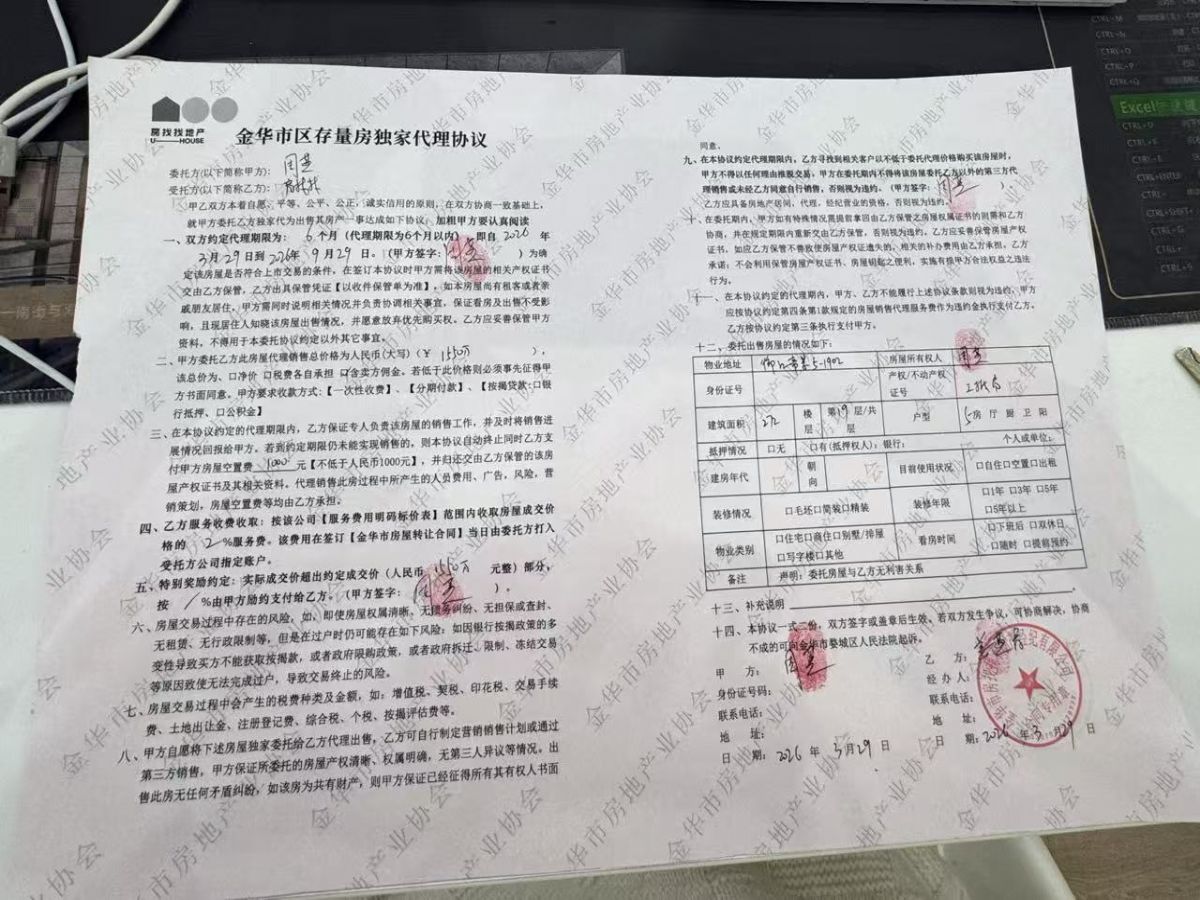 房找找地产
U HOUSE
金华市区存量房独家代理协议
委托方(以下简称甲方):
受托方(以下简称乙方): 房找找
甲乙双方本着自愿、平等、公平、公正、诚实信用的原则，在双方协商一致基础上，
就甲方委托乙方独家代为出售其房产一事达成如下协议，加粗甲方要认真阅读
一、双方约定代理期限为： 6 个月（代理期限为6个月以内），即自 2026 年
3月29日到2026年9月29日。（甲方签字： ）为确
定该房屋是否符合上市交易的条件，在签订本协议时甲方需将该房屋的相关产权证书
交由乙方保管，乙方出具保管凭证【以收件保管单为准】，如本房屋尚有租客或者亲
戚朋友居住，甲方需同时说明相关情况并负责协调相关事宜，保证看房及出售不受影
响，且现居住人知晓该房屋出售情况，并愿意放弃优先购买权。乙方应妥善保管甲方
资料，不得用于本委托协议约定以外其它事宜。
二、甲方委托乙方此房屋代理销售总价格为人民币(大写)(￥ 1550万 )，
该总价为、口净价 口税费各自承担 口含卖方佣金。若低于此价格则必须事先征得甲
方书面同意。甲方要求收款方式:【一次性收费】、【分期付款】、【按揭贷款:口银
行抵押、口公积金】
三、在本协议约定的代理期限内，乙方保证专人负责该房屋的销售工作，并及时将销售进
展情况回报给甲方。若到约定期限仍未能实现销售的，则本协议自动终止同时乙方支
付甲方房屋空置费 1000 元【不低于人民币1000元】，并归还交由乙方保管的该房
屋产权证书及其相关资料。代理销售此房过程中所产生的人员费用、广告，风险，营
销策划，房屋空置费等均由乙方承担。
四、乙方服务收费收取：按该公司【服务费用明码标价表】范围内收取房屋成交价
格的 2 %服务费。该费用在签订【金华市房屋转让合同】当日由委托方打入
受托方公司指定账户。
五、特别奖励约定：实际成交价超出约定成交价（人民币 1550万 元整）部分，
按 / %由甲方励约支付给乙方。（甲方签字： ）。
六、房屋交易过程中存在的风险，如，即使房屋权属清晰、无债务纠纷、无担保或查封、
无租赁、无行政限制等，但是在过户时仍可能存在如下风险：如因银行按揭政策的多
变性导致买方不能获取按揭款，或者政府限购政策，或者政府拆迁、限制、冻结交易
等原因致使无法完成过户，导致交易终止的风险。
七、房屋交易过程中会产生的税费种类及金额，如：增值税、契税、印花税、交易手续
费、土地出让金、注册登记费、综合税、个税、按揭评估费等。
八、甲方自愿将下述房屋独家委托给乙方代理出售，乙方可自行制定营销销售计划或通过
第三方销售，甲方保证所委托的房屋产权清晰、权属明确，无第三人异议等情况。出
售此房无任何矛盾纠纷，如该房为共有财产，则甲方保证已经征得所有其有权人书面
同意。
九、在本协议约定代理期限内，乙方寻找到相关客户以不低于委托代理价格购买该房屋时，
甲方不得以任何理由推脱交易，甲方在委托期内不得将该房屋委托乙方以外的第三方代
理销售或未经乙方同意自行销售，否则视为违约。（甲方签字： ）
乙方应具备房地产居间，代理，经纪营业的资格，否则视为违约。
十、在委托期内，甲方如有特殊情况需提前拿回由乙方保管之房屋权属证书的则需和乙方
协商，并在规定期限内重新交由乙方保管，否则视为违约。乙方应妥善保管房屋产权
证书，如应乙方保管不善致使房屋产权证遗失的，相关的补办费用由乙方承担，乙方
承诺：不会利用保管房屋产权证书、房屋钥匙之便利，实施有损甲方合法权益之违法
行为。
十一、在本协议约定的代理期内，甲方、乙方不能履行上述协议条款则视为违约，甲方
应按协议约定第四条第1款规定的房屋销售代理服务费作为违约金执行支付乙方。
乙方按协议约定第三条执行支付甲方。
十二、委托出售房屋的情况如下：
物业地址 5-1902 房屋所有权人
身份证号 产权/不动产权证号
建筑面积 楼层 第19层/共 层 户型 5房 厅 厨 卫 阳
抵押情况 口无 口有(抵押权人)：银行： 个人或单位：
建房年代 朝向 目前使用状况 口自住口空置口出租
装修情况 口毛坯口简装口精装 装修年限 口1年 口3年 口5年 口5年以上
物业类别 口住宅口商住口别墅/排屋 口写字楼口其他 看房时间 口下班后 口双休日 口随时 口提前预约
备注 声明：委托房屋与乙方无利害关系
十三、补充说明
十四、本协议一式二份，双方签字或盖章后生效，若双方发生争议，可协商解决，协商
不成的可向金华市婺城区人民法院起诉。
甲 方： 乙 方：
身份证号码： 经 办 人：
联系电话： 联系电话：
地 址： 地 址：
日 期：2026 年 3月29 日 日 期：2026 年3月29 日
金华市房地产业协会
Excel